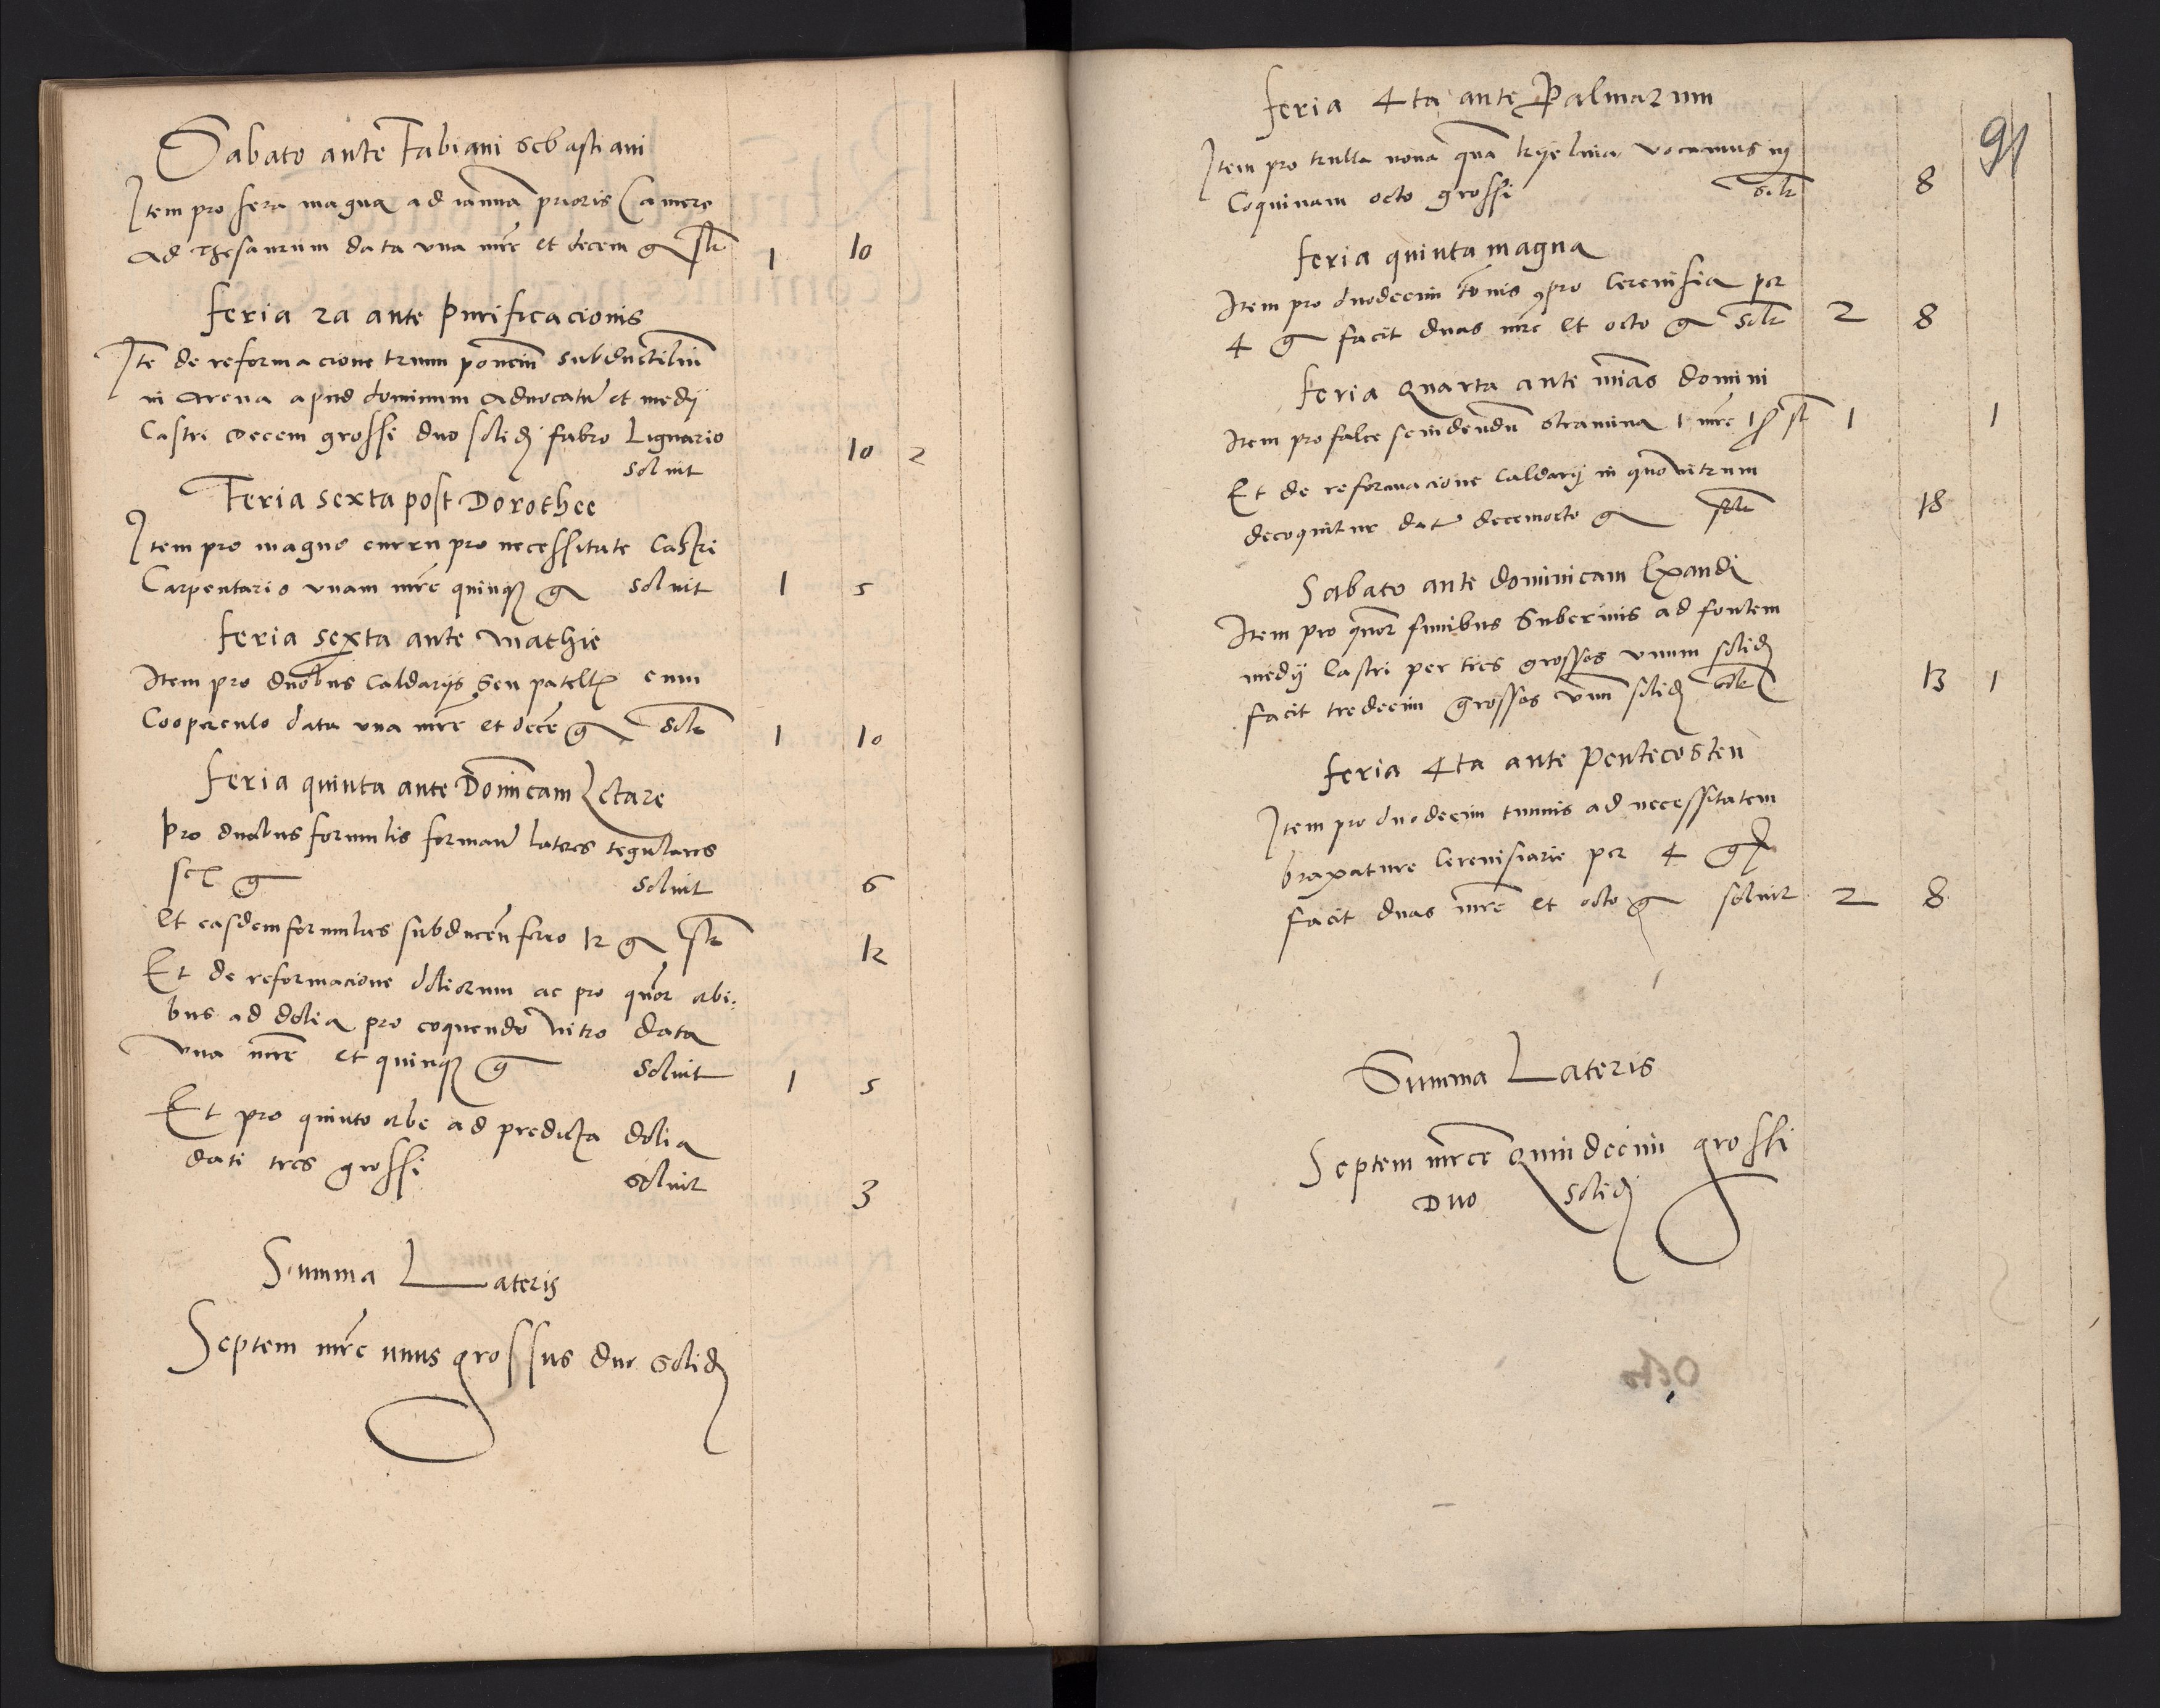 Sabato ante Fabiani Sebastiani
Item pro sera magna ad ianuã prioris Camere
ad Thesaurum data una mrc et decem g solt 1 10
feria 2a ante Purificacionis
Ite de reformacione trium ponciũ subductiliũ
in arena apud dominum aduocatũ et medij
Castri decem grossi duo solidj fabro Lignario
soluit 10 2
Feria sexta post Dorothee
Item pro magno curru pro necessitate Castri
Carpentario unam mrc quinqz g soluit 1 5
feria sexta ante Mathie
Item pro duobus Caldarijs seu patell cum
Cooperculo data una mrc et decẽ g solt 1 10
feria quinta ante Dominicam Letare
Pro duabus formulis formand lateres tegulares
sex g soluit 6
et easdem formulas subducen ferro 12 g solt 12
Et de reformacione doliorum ac pro quor orbi:
bus ad dolia pro coquendo nitro data
una mrc et quinqz g soluit 1 5
Et pro quinto orbe ad predicta dolia
dati tres grossi soluit 3
Summa Lateris
Septem mrc unus grossus duo solidj
91
feria 4ta ante Palmarum
Item pro trulla noua quã vocamus in
Coquinam octo grossi solt 8
feria quinta magna
Item pro duodecim tũnis pro Cereuisia per
4 g facit duas mrc et octo g solt 2 8
feria quarta ante mĩas domini
Item pro falce scindendũ stramina 1 mrc 1 ß st 1 1
Et de reformacione Caldarij in quo nitrum
decoquitur dat decemocto g solt 18
Sabato ante dominicam Exaudi
Item pro quor funibus Suberinis ad fontem
medij Castri per tres grossos unum solidj
facit tredecim grossos unũ solidj solt 13 1
feria 4ta ante Pentecosten
Item pro duodecim tunnis ad necessitatem
braxature Cereuisiarie per 4 g
facit duas mrc et octo g soluit 2 8
Summa Lateris
Septem mrce quindecim grossi
Duo solidj